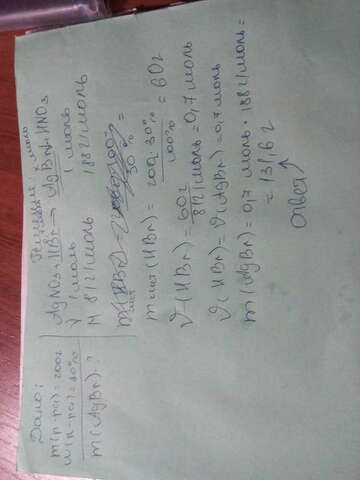 Дано:
m(р-ра) = 200г
w(р-ра) = 30%
m(AgBr) - ?
Решение: x моль
AgNO3 + HBr → AgBr↓ + HNO3
ν 1 моль 1 моль
M 81г/моль 188г/моль
mчист(HBr) = 200 · 30% / 100% = 60г
ν(HBr) = 60г / 81г/моль = 0,7 моль
ν(HBr) = ν(AgBr) = 0,7 моль
m(AgBr) = 0,7 моль · 188г/моль =
= 131,6 г
Ответ